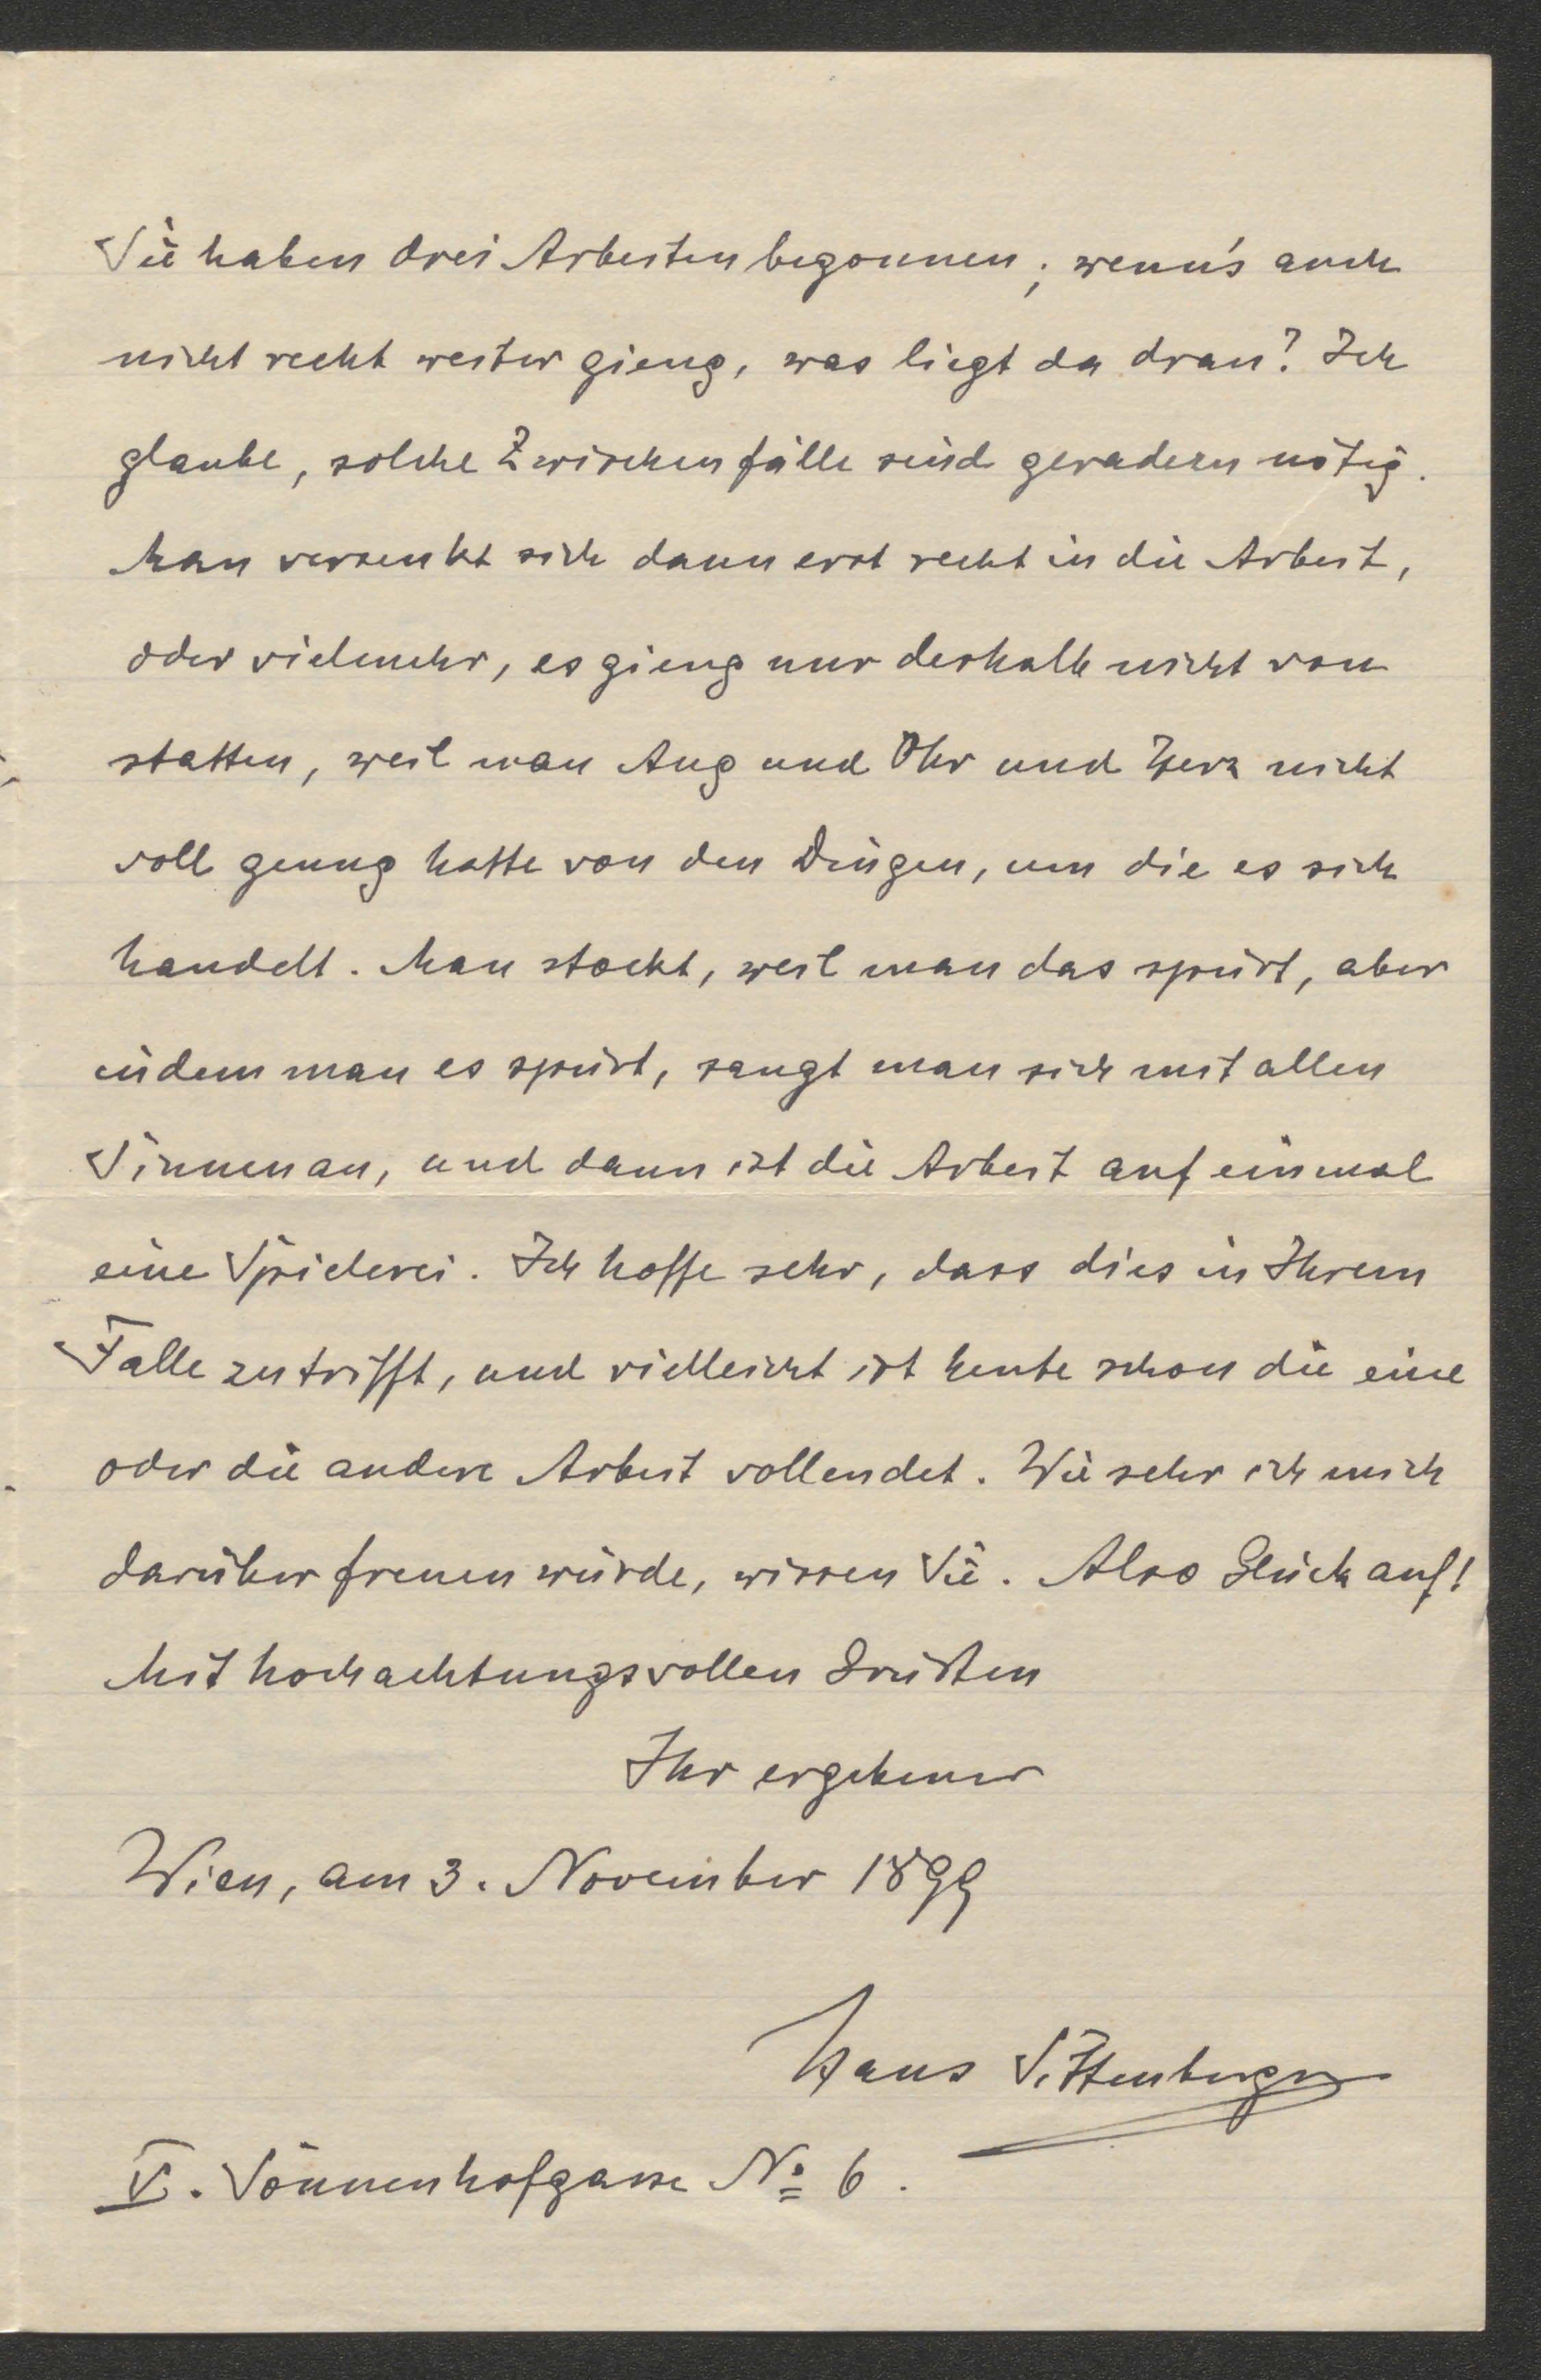 Sie haben drei Arbeiten begonnen; wenn's auch
nicht recht weiter gieng, was liegt da dran? Ich
glaube, solche Zwischenfälle sind geradezu nötig.
Man versenkt sich dann erst recht in die Arbeit,
oder vielmehr, es gieng nur deshalb nicht von
statten, weil man Aug und Ohr und Herz nicht
voll genug hatte von den Dingen, um die es sich
handelt. Man stockt, weil man das spürt, aber
indem man es spürt, saugt man sich mit allen
Sinnen an, und dann ist die Arbeit auf einmal
eine Spielerei. Ich hoffe sehr, dass dies in Ihrem
Falle zutrifft, und vielleicht ist heute schon die eine
oder die andere Arbeit vollendet. Wie sehr ich mich
darüber freuen würde, wissen Sie. Also Glück auf!
Mit hochachtungsvollen Grüßen
Ihr ergebener
Wien, am 3. November 1899
Hans Sittenberger
V. Sonnenhofgasse No 6.